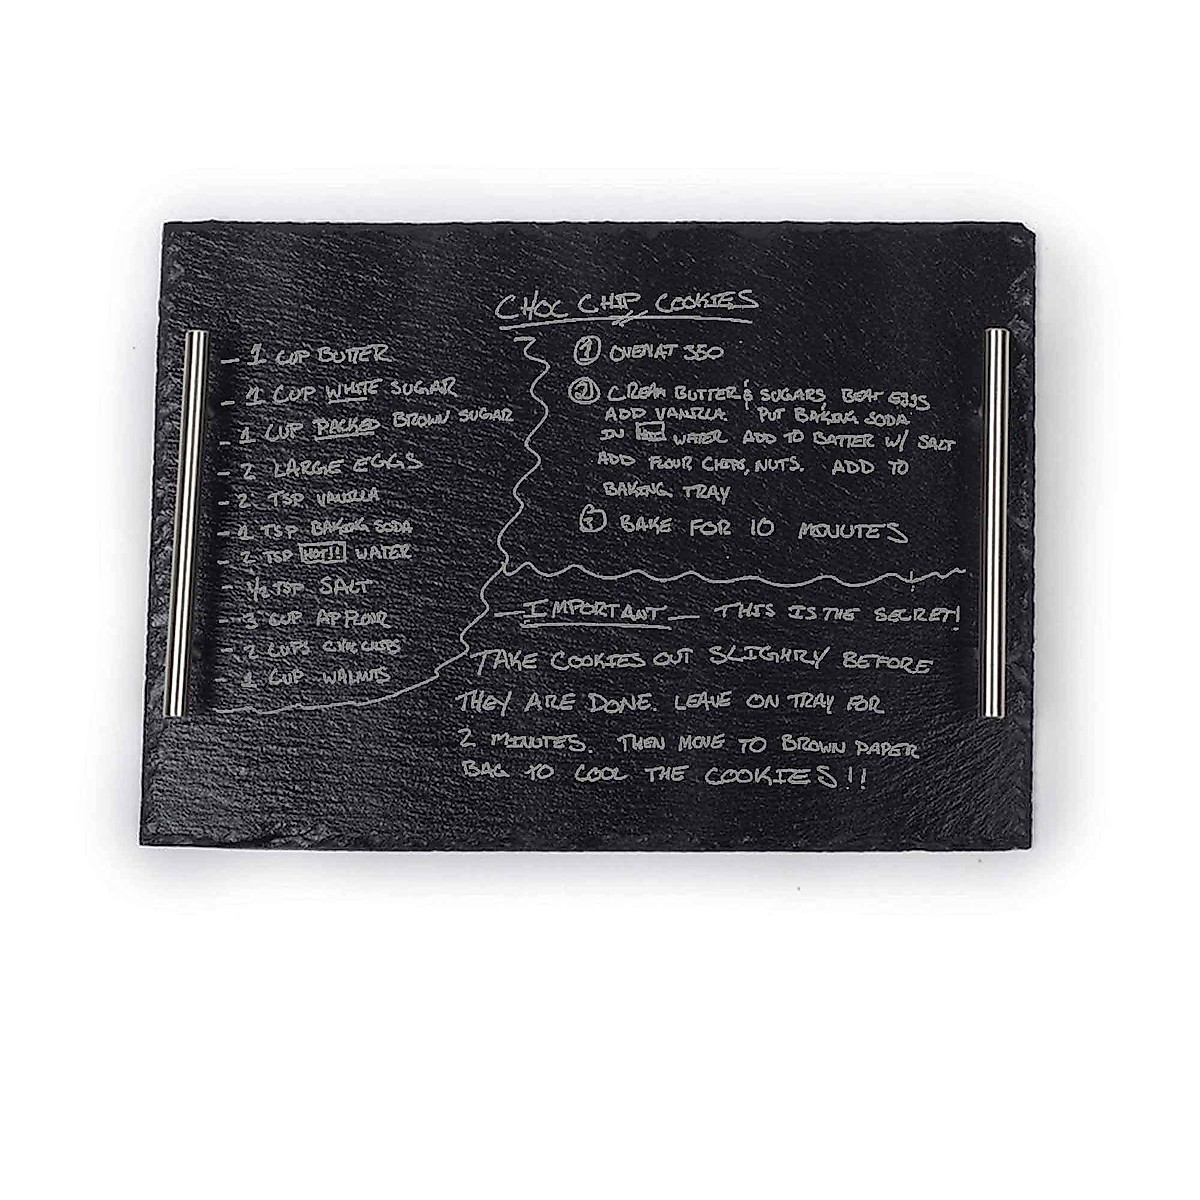 CHOC CHIP COOKIES
- 1 CUP BUTTER
- 1 CUP WHITE SUGAR
- 1 CUP PACKED BROWN SUGAR
- 2 LARGE EGGS
- 2 TSP VANILLA
- 1 TSP BAKING SODA
- 2 TSP HOT!! WATER
- 1/2 TSP SALT
- 3 CUP AP FLOUR
- 2 CUPS CHOC CHIPS
- 1 CUP WALNUTS
1 OVEN AT 350
2 CREAM BUTTER & SUGARS, BEAT EGGS
ADD VANILLA. PUT BAKING SODA
IN HOT WATER ADD TO BATTER W/ SALT
ADD FLOUR CHIPS, NUTS. ADD TO
BAKING TRAY
3 BAKE FOR 10 MINUTES
- IMPORTANT - THIS IS THE SECRET!
TAKE COOKIES OUT SLIGHTLY BEFORE
THEY ARE DONE. LEAVE ON TRAY FOR
2 MINUTES. THEN MOVE TO BROWN PAPER
BAG TO COOL THE COOKIES!!